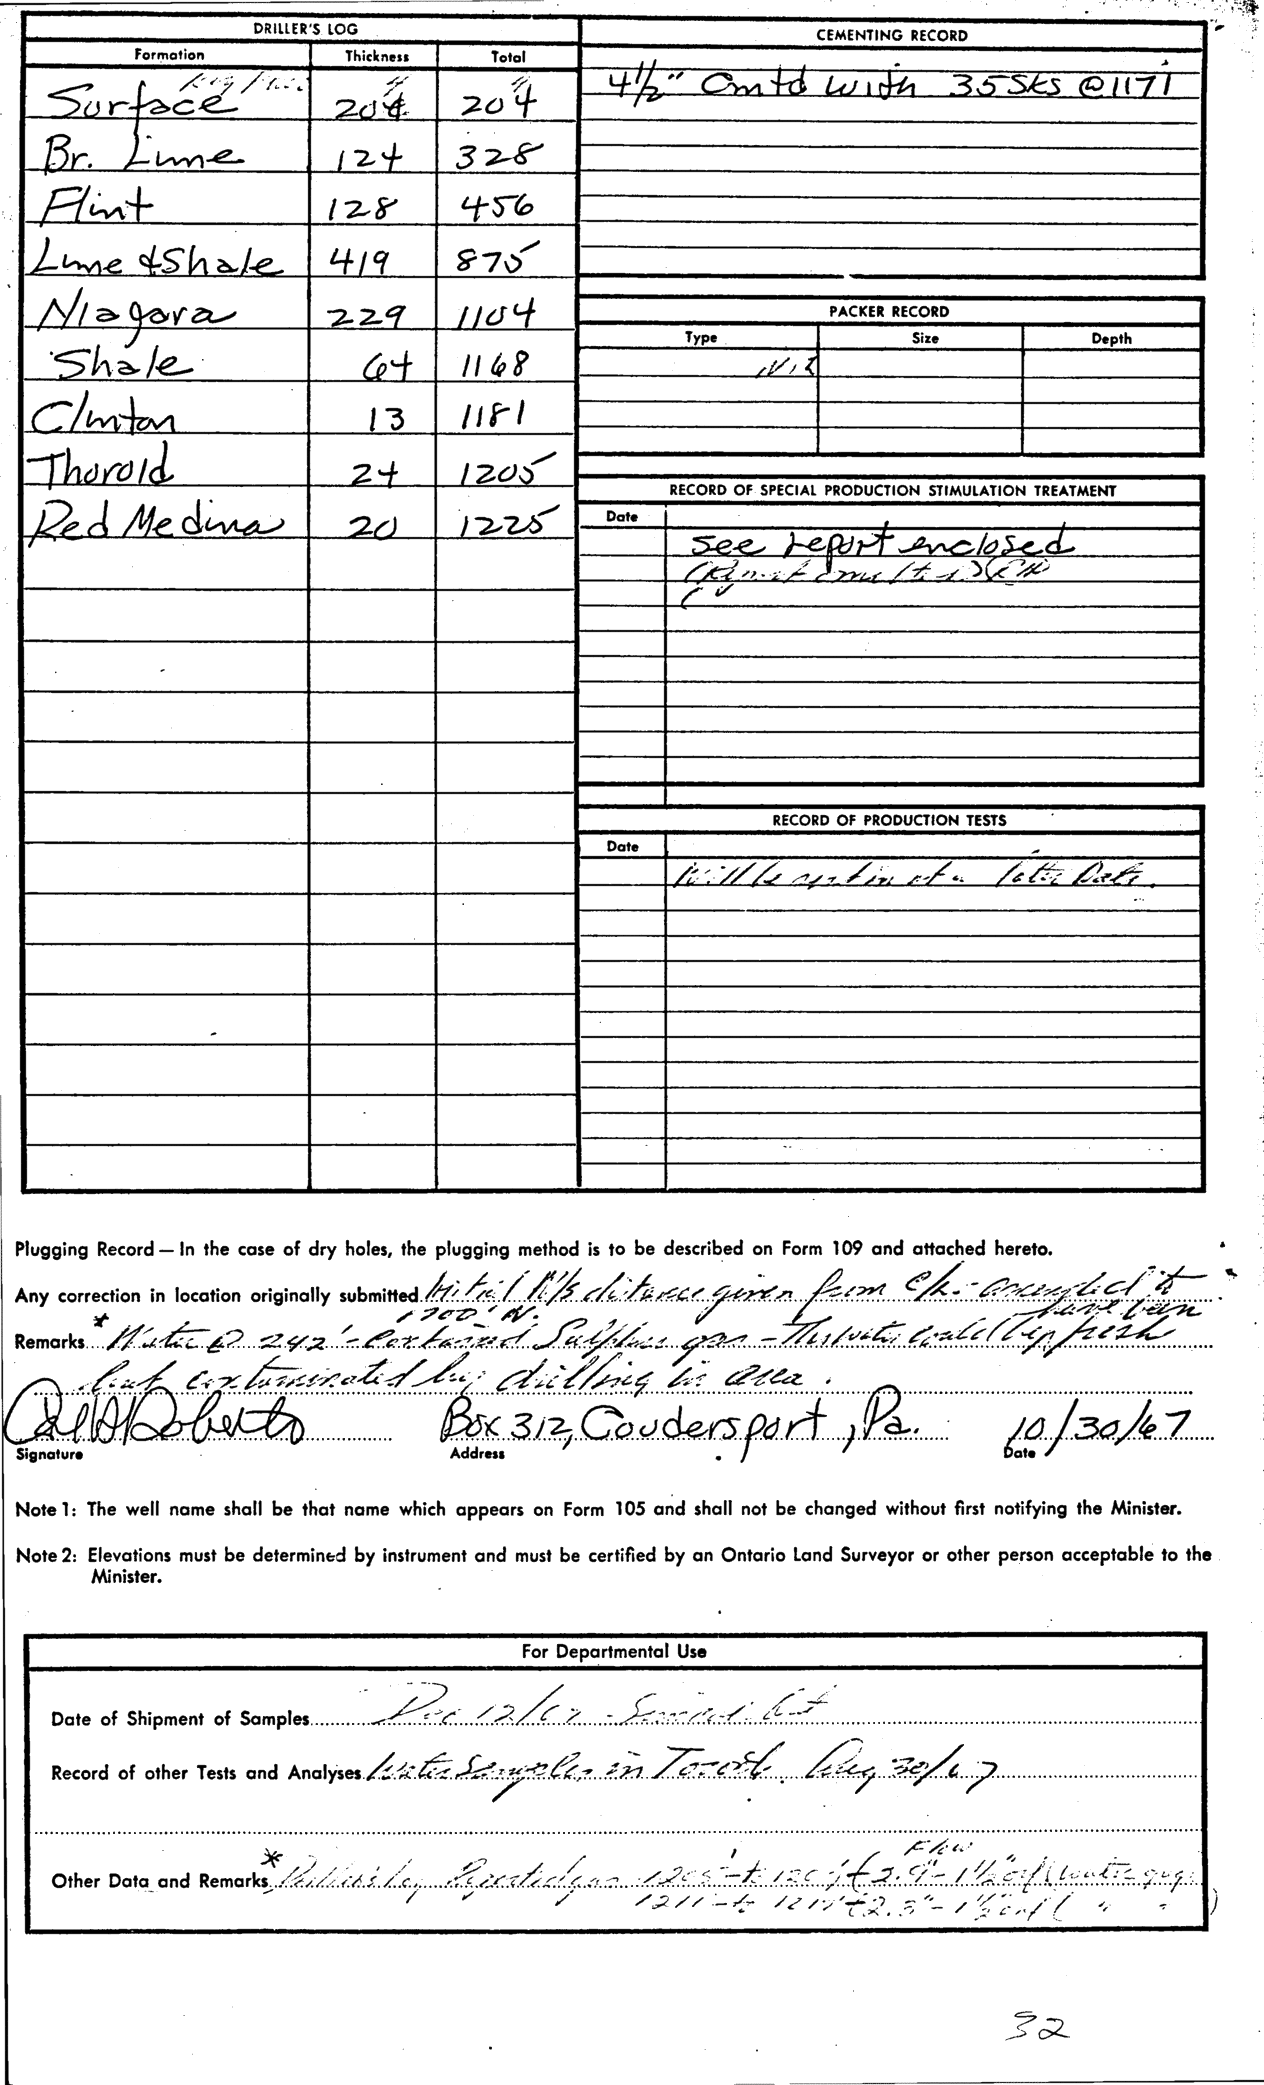 DRILLER'S LOG
Formation Thickness Total
Surface 204 204
Br. Lime 124 328
Flint 128 456
Lime & Shale 419 875
Niagara 229 1104
Shale 64 1168
Clinton 13 1181
Thorold 24 1205
Red Medina 20 1225
CEMENTING RECORD
4½" Cmtd with 35 Sks @ 1171
PACKER RECORD
Type Size Depth
Nil
RECORD OF SPECIAL PRODUCTION STIMULATION TREATMENT
Date
See report enclosed
RECORD OF PRODUCTION TESTS
Date
Will be at a later Date.
Plugging Record — In the case of dry holes, the plugging method is to be described on Form 109 and attached hereto.
Any correction in location originally submitted Initial N/S distance given from - amended to
1700' N.
have been
Remarks * Water @ 242' - contained Sulphur gas - This water could fresh
but contaminated by drilling in area.
Carl Roberts Box 312, Coudersport, Pa. 10/30/67
Signature Address Date
Note 1: The well name shall be that name which appears on Form 105 and shall not be changed without first notifying the Minister.
Note 2: Elevations must be determined by instrument and must be certified by an Ontario Land Surveyor or other person acceptable to the
Minister.
For Departmental Use
Date of Shipment of Samples Dec 12/67
Record of other Tests and Analyses Water Samples in Aug 30/67
Flow
Other Data and Remarks * Driller's log Reported gas 1205' to
1211 to
32